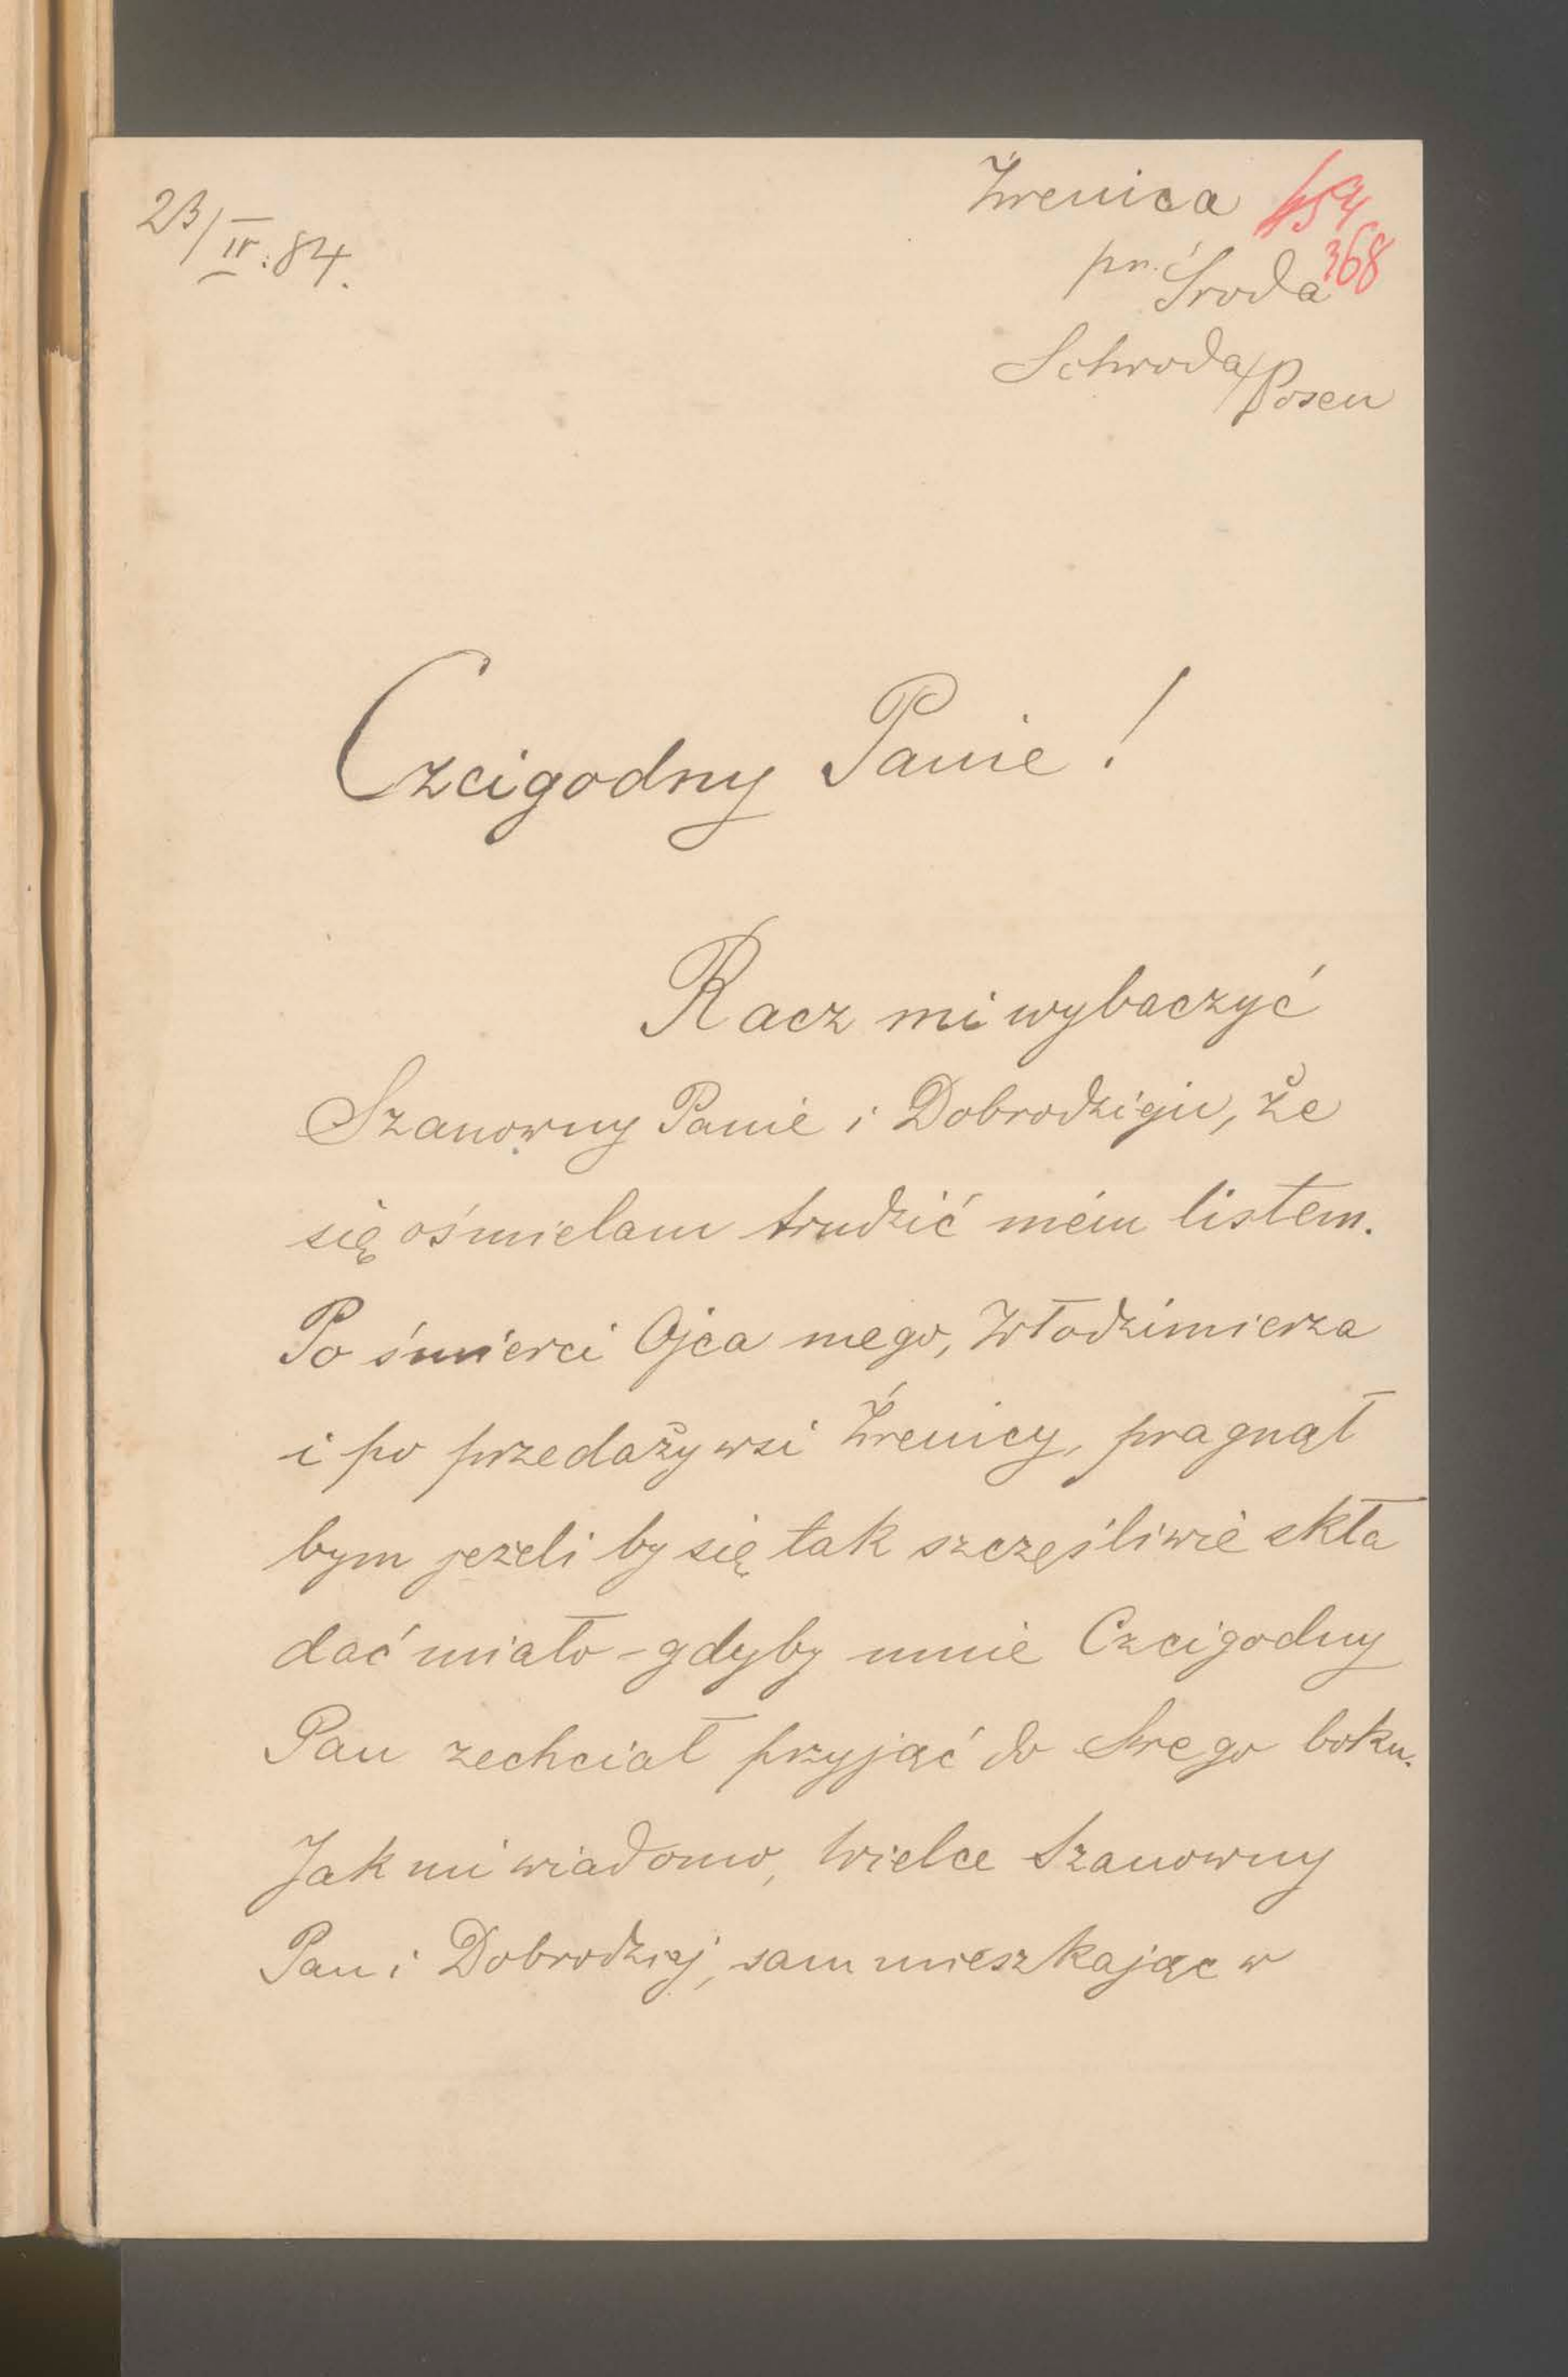 23/IV.84.
Źrenica 454
pr. Środa 368
Schroda/Posen
Czcigodny Panie!
Racz mi wybaczyć
Szanowny Panie i Dobrodzieju, że
się ośmielam trudzić mém listem.
Po śmierci Ojca mego, Włodzimierza
i po przedaży wsi Źrenicy, pragnął
bym jeżeli by się tak szczęśliwie skła
dać miało - gdyby mnie Czcigodny
Pan zechciał przyjąć do Swego boku.
Jak mi wiadomo, Wielce Szanowny
Pan i Dobrodziej, sam mieszkając w